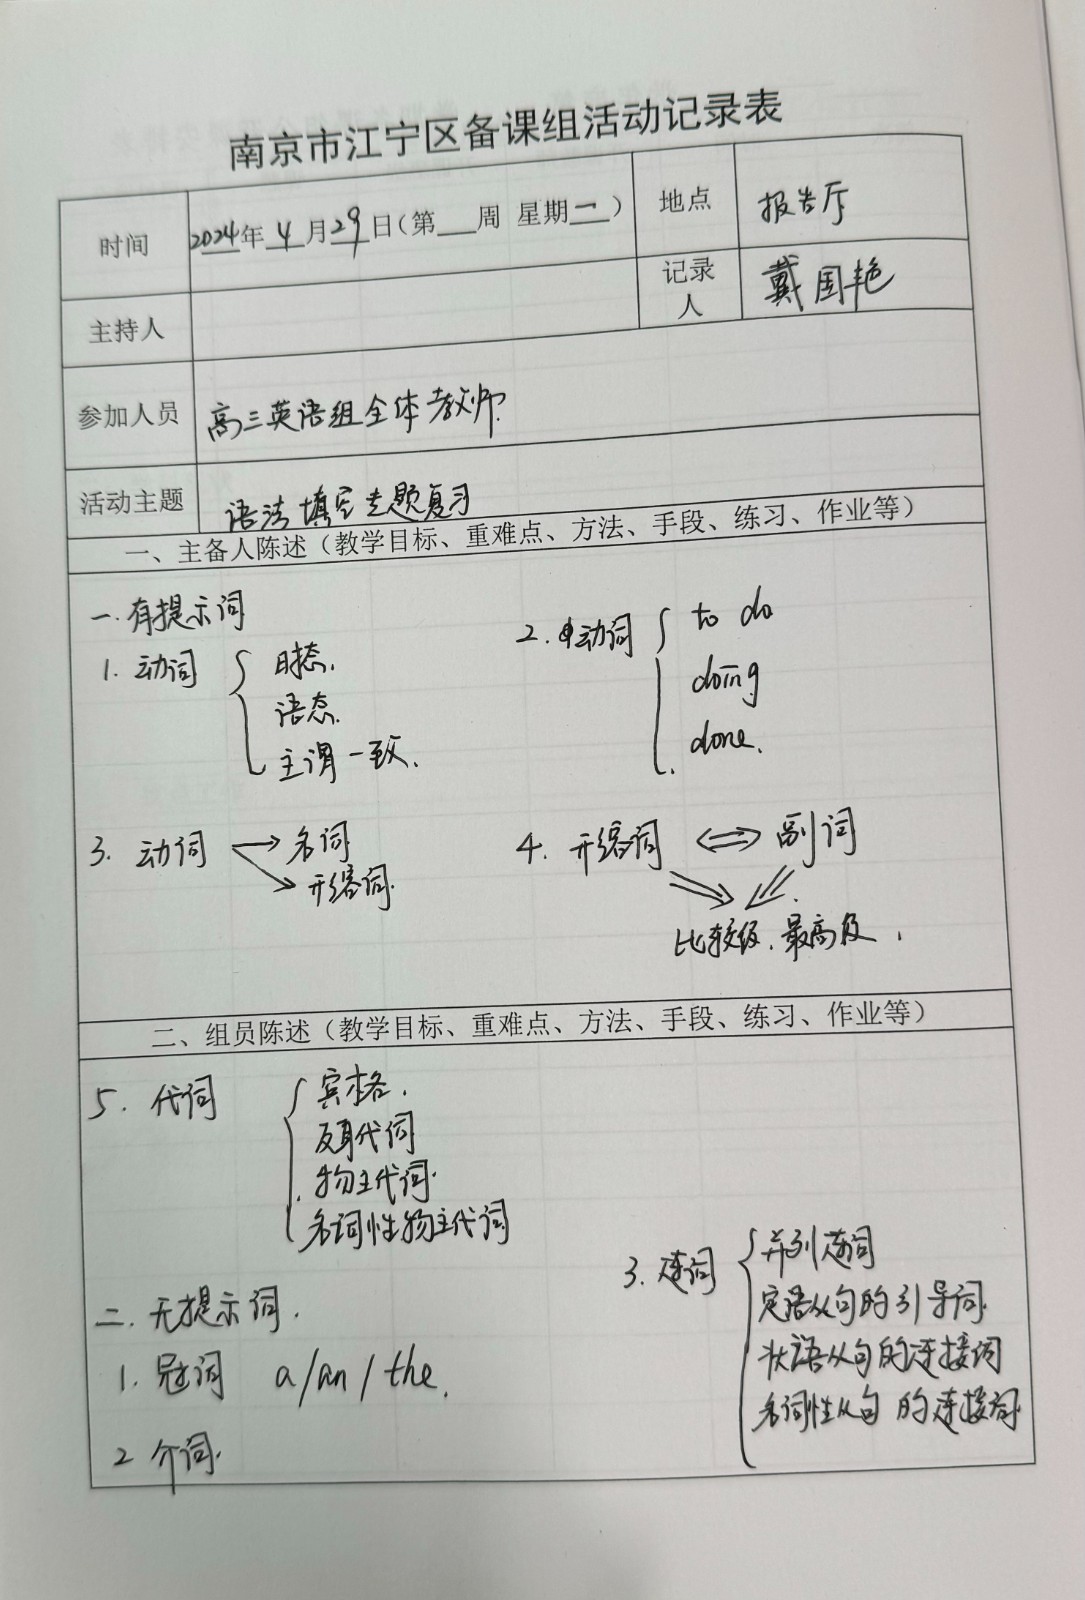 南京市江宁区备课组活动记录表
时间 2024年4月29日（第__周 星期一） 地点 报告厅
主持人 记录人 戴国艳
参加人员 高三英语组全体教师.
活动主题 语法填空专题复习
一、主备人陈述（教学目标、重难点、方法、手段、练习、作业等）
一.有提示词
1. 动词 时态.
语态.
主谓一致.
2. 动词 to do
doing
done.
3. 动词 → 名词
→ 形容词.
4. 形容词 ⇔ 副词
比较级.最高级.
二、组员陈述（教学目标、重难点、方法、手段、练习、作业等）
5. 代词 宾格.
反身代词
物主代词.
名词性物主代词
二.无提示词.
1. 冠词 a/an/the.
2 介词.
3. 连词 并列连词
定语从句的引导词.
状语从句的连接词
名词性从句的连接词.